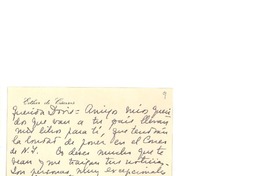 9
Esther de Cáceres
Querida Doris = Amigos míos queri
dos que van a tu país llevan
mis libros para ti, que tendrán
la bondad de poner en el Correo
de N.Y. Os deseo mucho que te
vean y me traigan tus noticias.
Son personas muy excepcionales